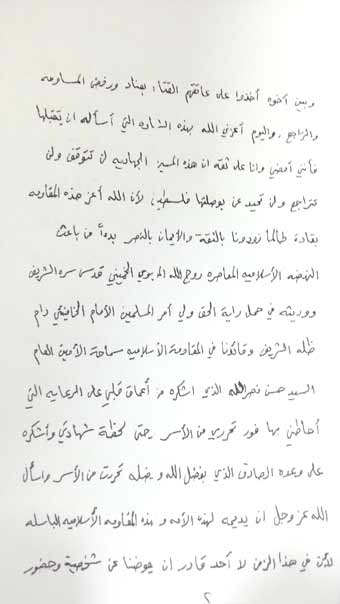 وبين أخوه أخذوا على عاتقهم القتال بعناد ورفض المساومه
والتراجع، واليوم أعزني الله بهذه الشهاده التي أسأله ان يتقبلها
فأنني أمضي وانا على ثقه ان هذه المسيره الجهاديه لن تتوقف ولن
تتراجع ولن تحيد عن بوصلتها فلسطين لأن الله أعز هذه المقاومه
بقادة طالما زودونا بالثقة والأيمان بالنصر بدءاً من باعث
النهضه الأسلاميه المعاصره روح الله الموسوي الخميني قدس سره الشريف
ووريثه في حمل راية الحق ولي أمر المسلمين الأمام الخامنئي دام
ظله الشريف وقائدنا في المقاومة الأسلاميه سماحة الأمين العام
السيد حسن نصرالله الذي اشكره من أعماق قلبي على الرعايه التي
أحاطني بها فور تحرري من الأسر حتى لحظة شهادتي وأشكره
على وعده الصادق الذي بفضل الله وبفضله تحررت من الأسر واسأل
الله عز وجل ان يديمه لهذه الأمه و هذه المقاومه الأسلاميه الباسله
لأن في هذا الزمن لا أحد قادر ان يعوضنا عن شخصية وحضور
٢